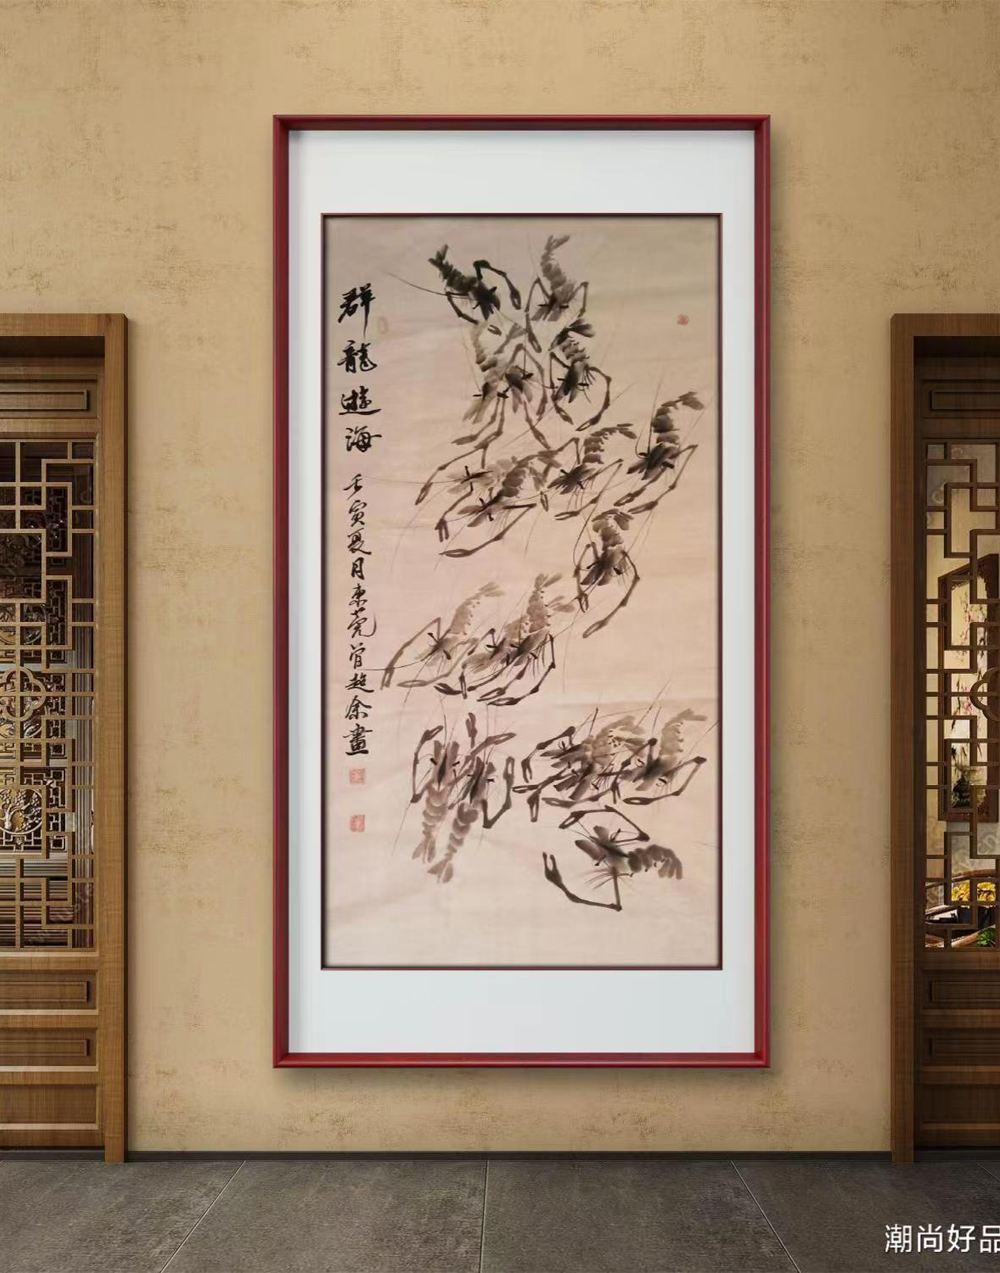 群龍遊海
壬寅夏月東莞曾超余畫
潮尚好品